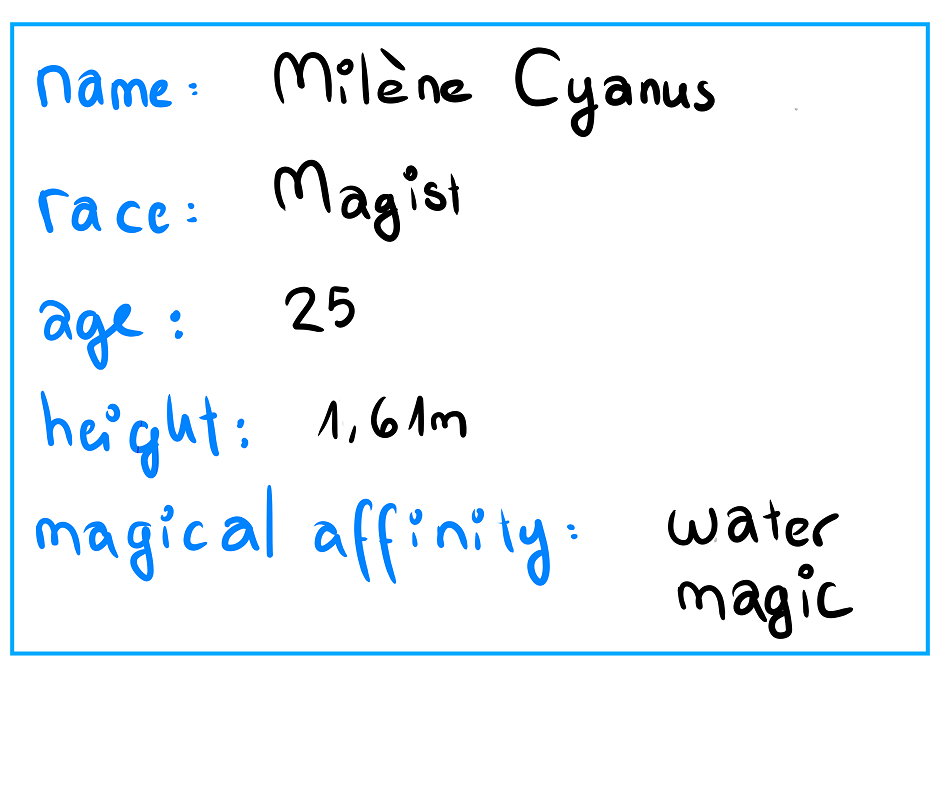 name: Milène Cyanus
race: Magist
age: 25
height: 1,61m
magical affinity: water
magic